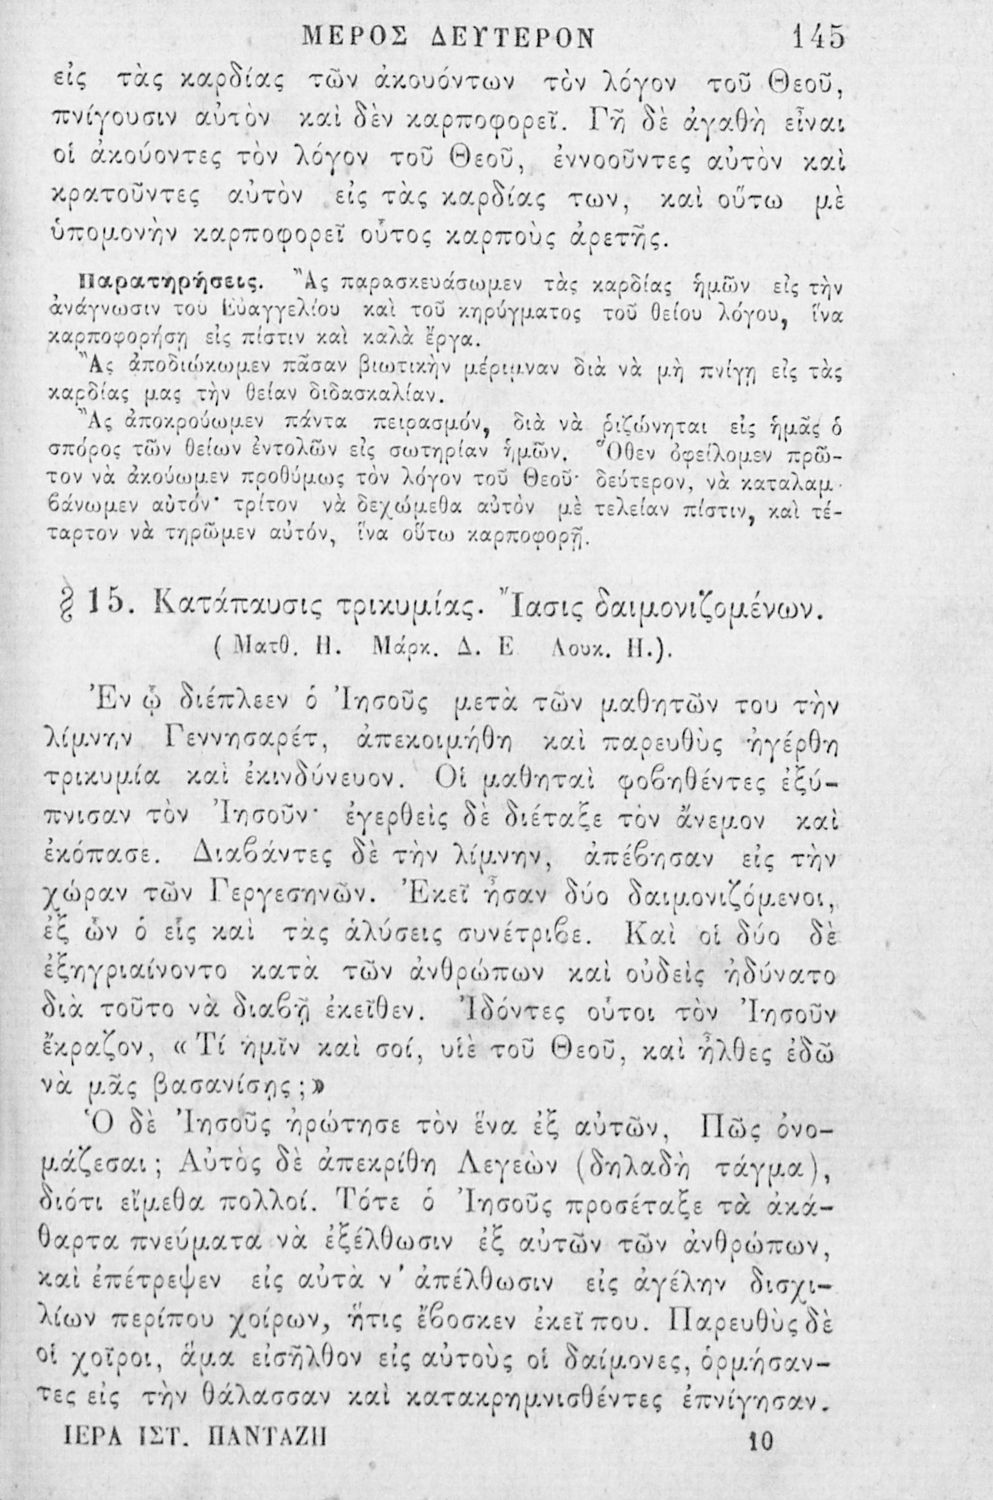 ΜΕΡΟΣ ΔΕΥΤΕΡΟΝ 145
εἰς τὰς καρδίας τῶν ἀκουόντων τὸν λόγον τοῦ Θεοῦ,
πνίγουσιν αὐτὸν καὶ δὲν καρποφορεῖ. Γῆ δὲ ἀγαθὴ εἶναι
οἱ ἀκούοντες τὸν λόγον τοῦ Θεοῦ, ἐννοοῦντες αὐτὸν καὶ
κρατοῦντες αὐτὸν εἰς τὰς καρδίας των, καὶ οὕτω μὲ
ὑπομονὴν καρποφορεῖ οὗτος καρποὺς ἀρετῆς.
Παρατηρήσεις. Ἂς παρασκευάσωμεν τὰς καρδίας ἡμῶν εἰς τὴν
ἀνάγνωσιν τοῦ Εὐαγγελίου καὶ τοῦ κηρύγματος τοῦ θείου λόγου, ἵνα
καρποφορήσῃ εἰς πίστιν καὶ καλὰ ἔργα.
Ἂς ἀποδιώκωμεν πᾶσαν βιωτικὴν μέριμναν διὰ νὰ μὴ πνίγῃ εἰς τὰς
καρδίας μας τὴν θείαν διδασκαλίαν.
Ἂς ἀποκρούωμεν πάντα πειρασμόν, διὰ νὰ ῥιζώνηται εἰς ἡμᾶς ὁ
σπόρος τῶν θείων ἐντολῶν εἰς σωτηρίαν ἡμῶν. Ὅθεν ὀφείλομεν πρῶ-
τον νὰ ἀκούωμεν προθύμως τὸν λόγον τοῦ Θεοῦ· δεύτερον, νὰ καταλαμ-
βάνωμεν αὐτόν· τρίτον νὰ δεχώμεθα αὐτὸν μὲ τελείαν πίστιν, καὶ τέ-
ταρτον νὰ τηρῶμεν αὐτόν, ἵνα οὕτω καρποφορῇ.
§ 15. Κατάπαυσις τρικυμίας. Ἴασις δαιμονιζομένων.
( Ματθ. Η. Μάρκ. Δ. Ε Λουκ. Η.).
Ἐν ᾧ διέπλεεν ὁ Ἰησοῦς μετὰ τῶν μαθητῶν του τὴν
λίμνην Γεννησαρέτ, ἀπεκοιμήθη καὶ παρευθὺς ἠγέρθη
τρικυμία καὶ ἐκινδύνευον. Οἱ μαθηταὶ φοβηθέντες ἐξύ-
πνισαν τὸν Ἰησοῦν· ἐγερθεὶς δὲ διέταξε τὸν ἄνεμον καὶ
ἐκόπασε. Διαβάντες δὲ τὴν λίμνην, ἀπέβησαν εἰς τὴν
χώραν τῶν Γεργεσηνῶν. Ἐκεῖ ἦσαν δύο δαιμονιζόμενοι,
ἐξ ὧν ὁ εἷς καὶ τὰς ἁλύσεις συνέτριβε. Καὶ οἱ δύο δὲ
ἐξηγριαίνοντο κατὰ τῶν ἀνθρώπων καὶ οὐδεὶς ἠδύνατο
διὰ τοῦτο νὰ διαβῇ ἐκεῖθεν. Ἰδόντες οὗτοι τὸν Ἰησοῦν
ἔκραζον, « Τί ἡμῖν καὶ σοί, υἱὲ τοῦ Θεοῦ, καὶ ἦλθες ἐδῶ
νὰ μᾶς βασανίσῃς ;»
Ὁ δὲ Ἰησοῦς ἠρώτησε τὸν ἕνα ἐξ αὐτῶν, Πῶς ὀνο-
μάζεσαι ; Αὐτὸς δὲ ἀπεκρίθη Λεγεὼν (δηλαδὴ τάγμα),
διότι εἴμεθα πολλοί. Τότε ὁ Ἰησοῦς προσέταξε τὰ ἀκά-
θαρτα πνεύματα νὰ ἐξέλθωσιν ἐξ αὐτῶν τῶν ἀνθρώπων,
καὶ ἐπέτρεψεν εἰς αὐτὰ ν' ἀπέλθωσιν εἰς ἀγέλην δισχι-
λίων περίπου χοίρων, ἥτις ἔβοσκεν ἐκεῖ που. Παρευθὺς δὲ
οἱ χοῖροι, ἅμα εἰσῆλθον εἰς αὐτοὺς οἱ δαίμονες, ὁρμήσαν-
τες εἰς τὴν θάλασσαν καὶ κατακρημνισθέντες ἐπνίγησαν.
ΙΕΡΑ ΙΣΤ. ΠΑΝΤΑΖΗ 10